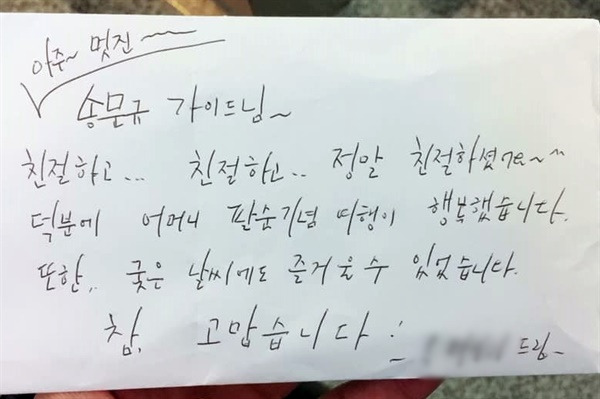 아주~ 멋진~
송문규 가이드님~
친절하고... 친절하고.. 정말 친절하셨구요~~
덕분에 어머니 팔순기념 여행이 행복했습니다.
또한, 궂은 날씨에도 즐거울수 있었습니다.
참, 고맙습니다!
드림~